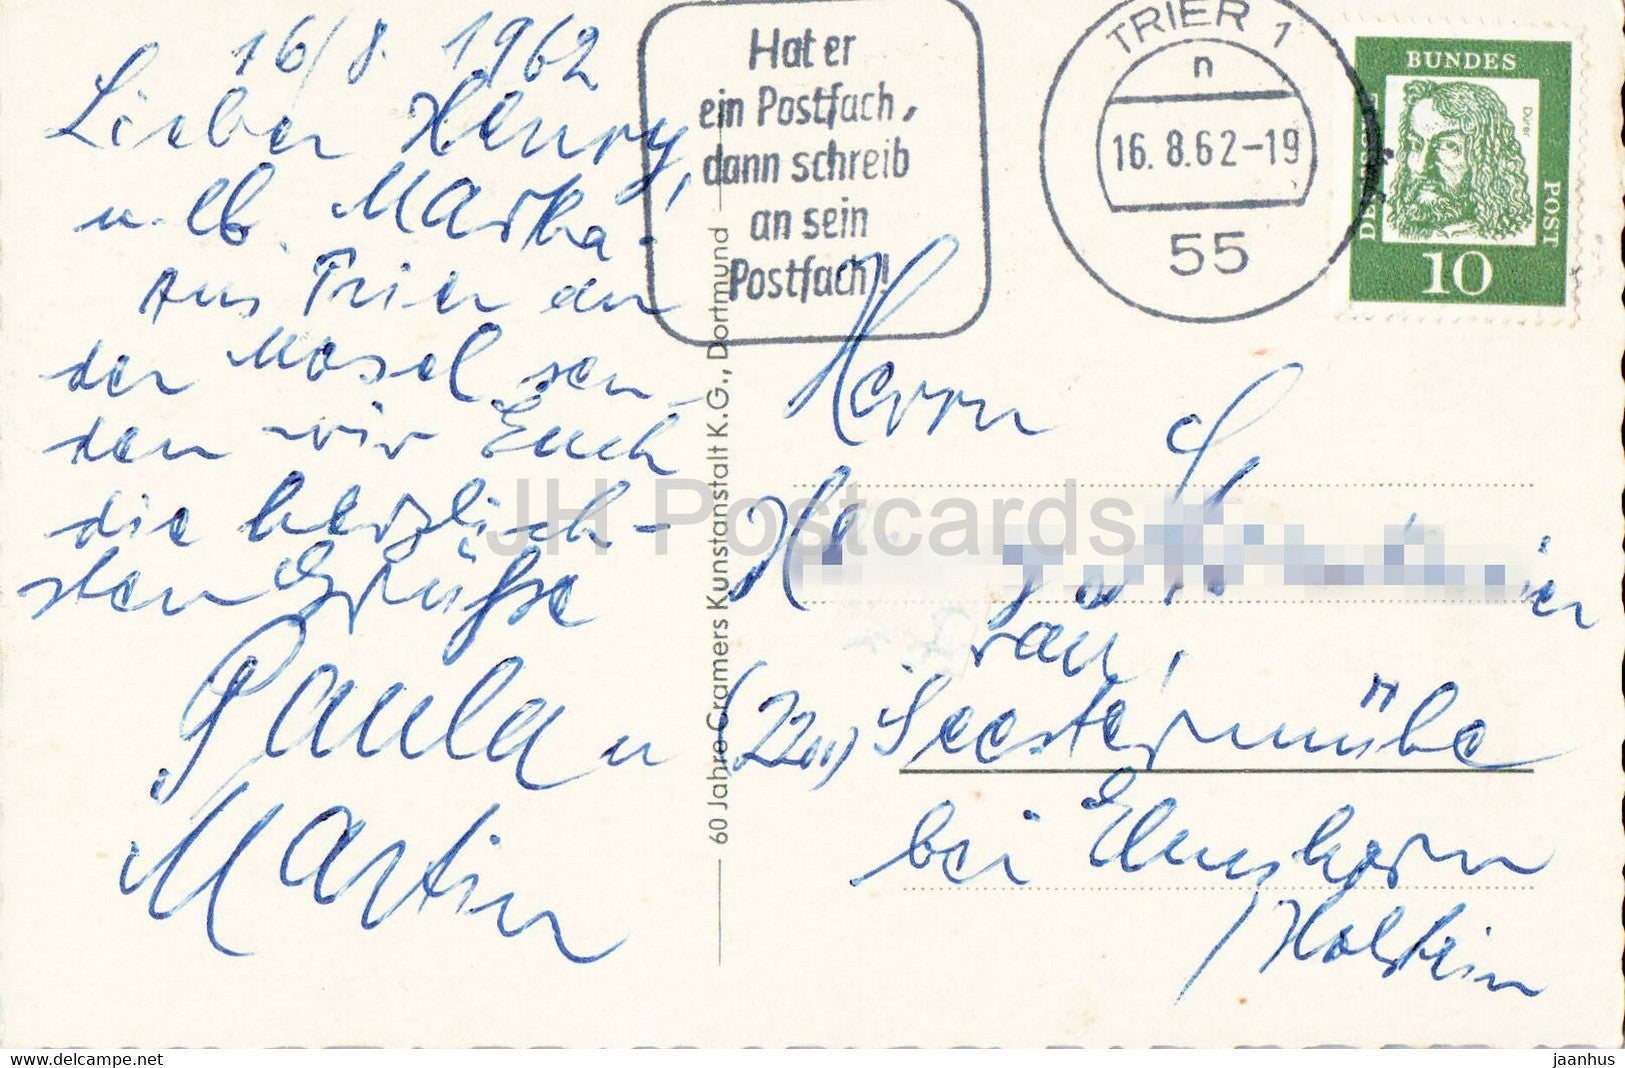 16/8. 1962
Lieber Henry,
u. lb. Martha.
Aus Trier an
der Mosel sen-
den wir Euch
die herzlich-
sten Grüße
Paula u
Martin
Hat er
ein Postfach,
dann schreib
an sein
Postfach!
TRIER 1
n
16. 8. 62-19
55
DEUTSCHE
BUNDES
POST
Dürer
10
60 Jahre Cramers Kunstanstalt K.G., Dortmund
Herrn
(2201) Seestermühe
bei Elmshorn
/Holstein
JH Postcards
jaanhus
delcampe.net